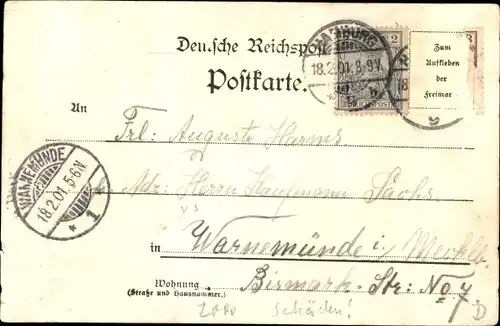 Deutsche Reichspost
Postkarte.
HAMBURG
18.2.01.8-9V.
2
REICHSPOST
Zum
Aufkleben
der
Freimar
An
Frl: Auguste Harms
Adr: Herrn Kaufmann Sachs
WARNEMÜNDE
18.2.01.5-6N.
* 1
in Warnemünde i/ Meckl.
Bismark-Str: No 4
Wohnung
(Straße und Hausnummer.)
2000 Schäden!
D